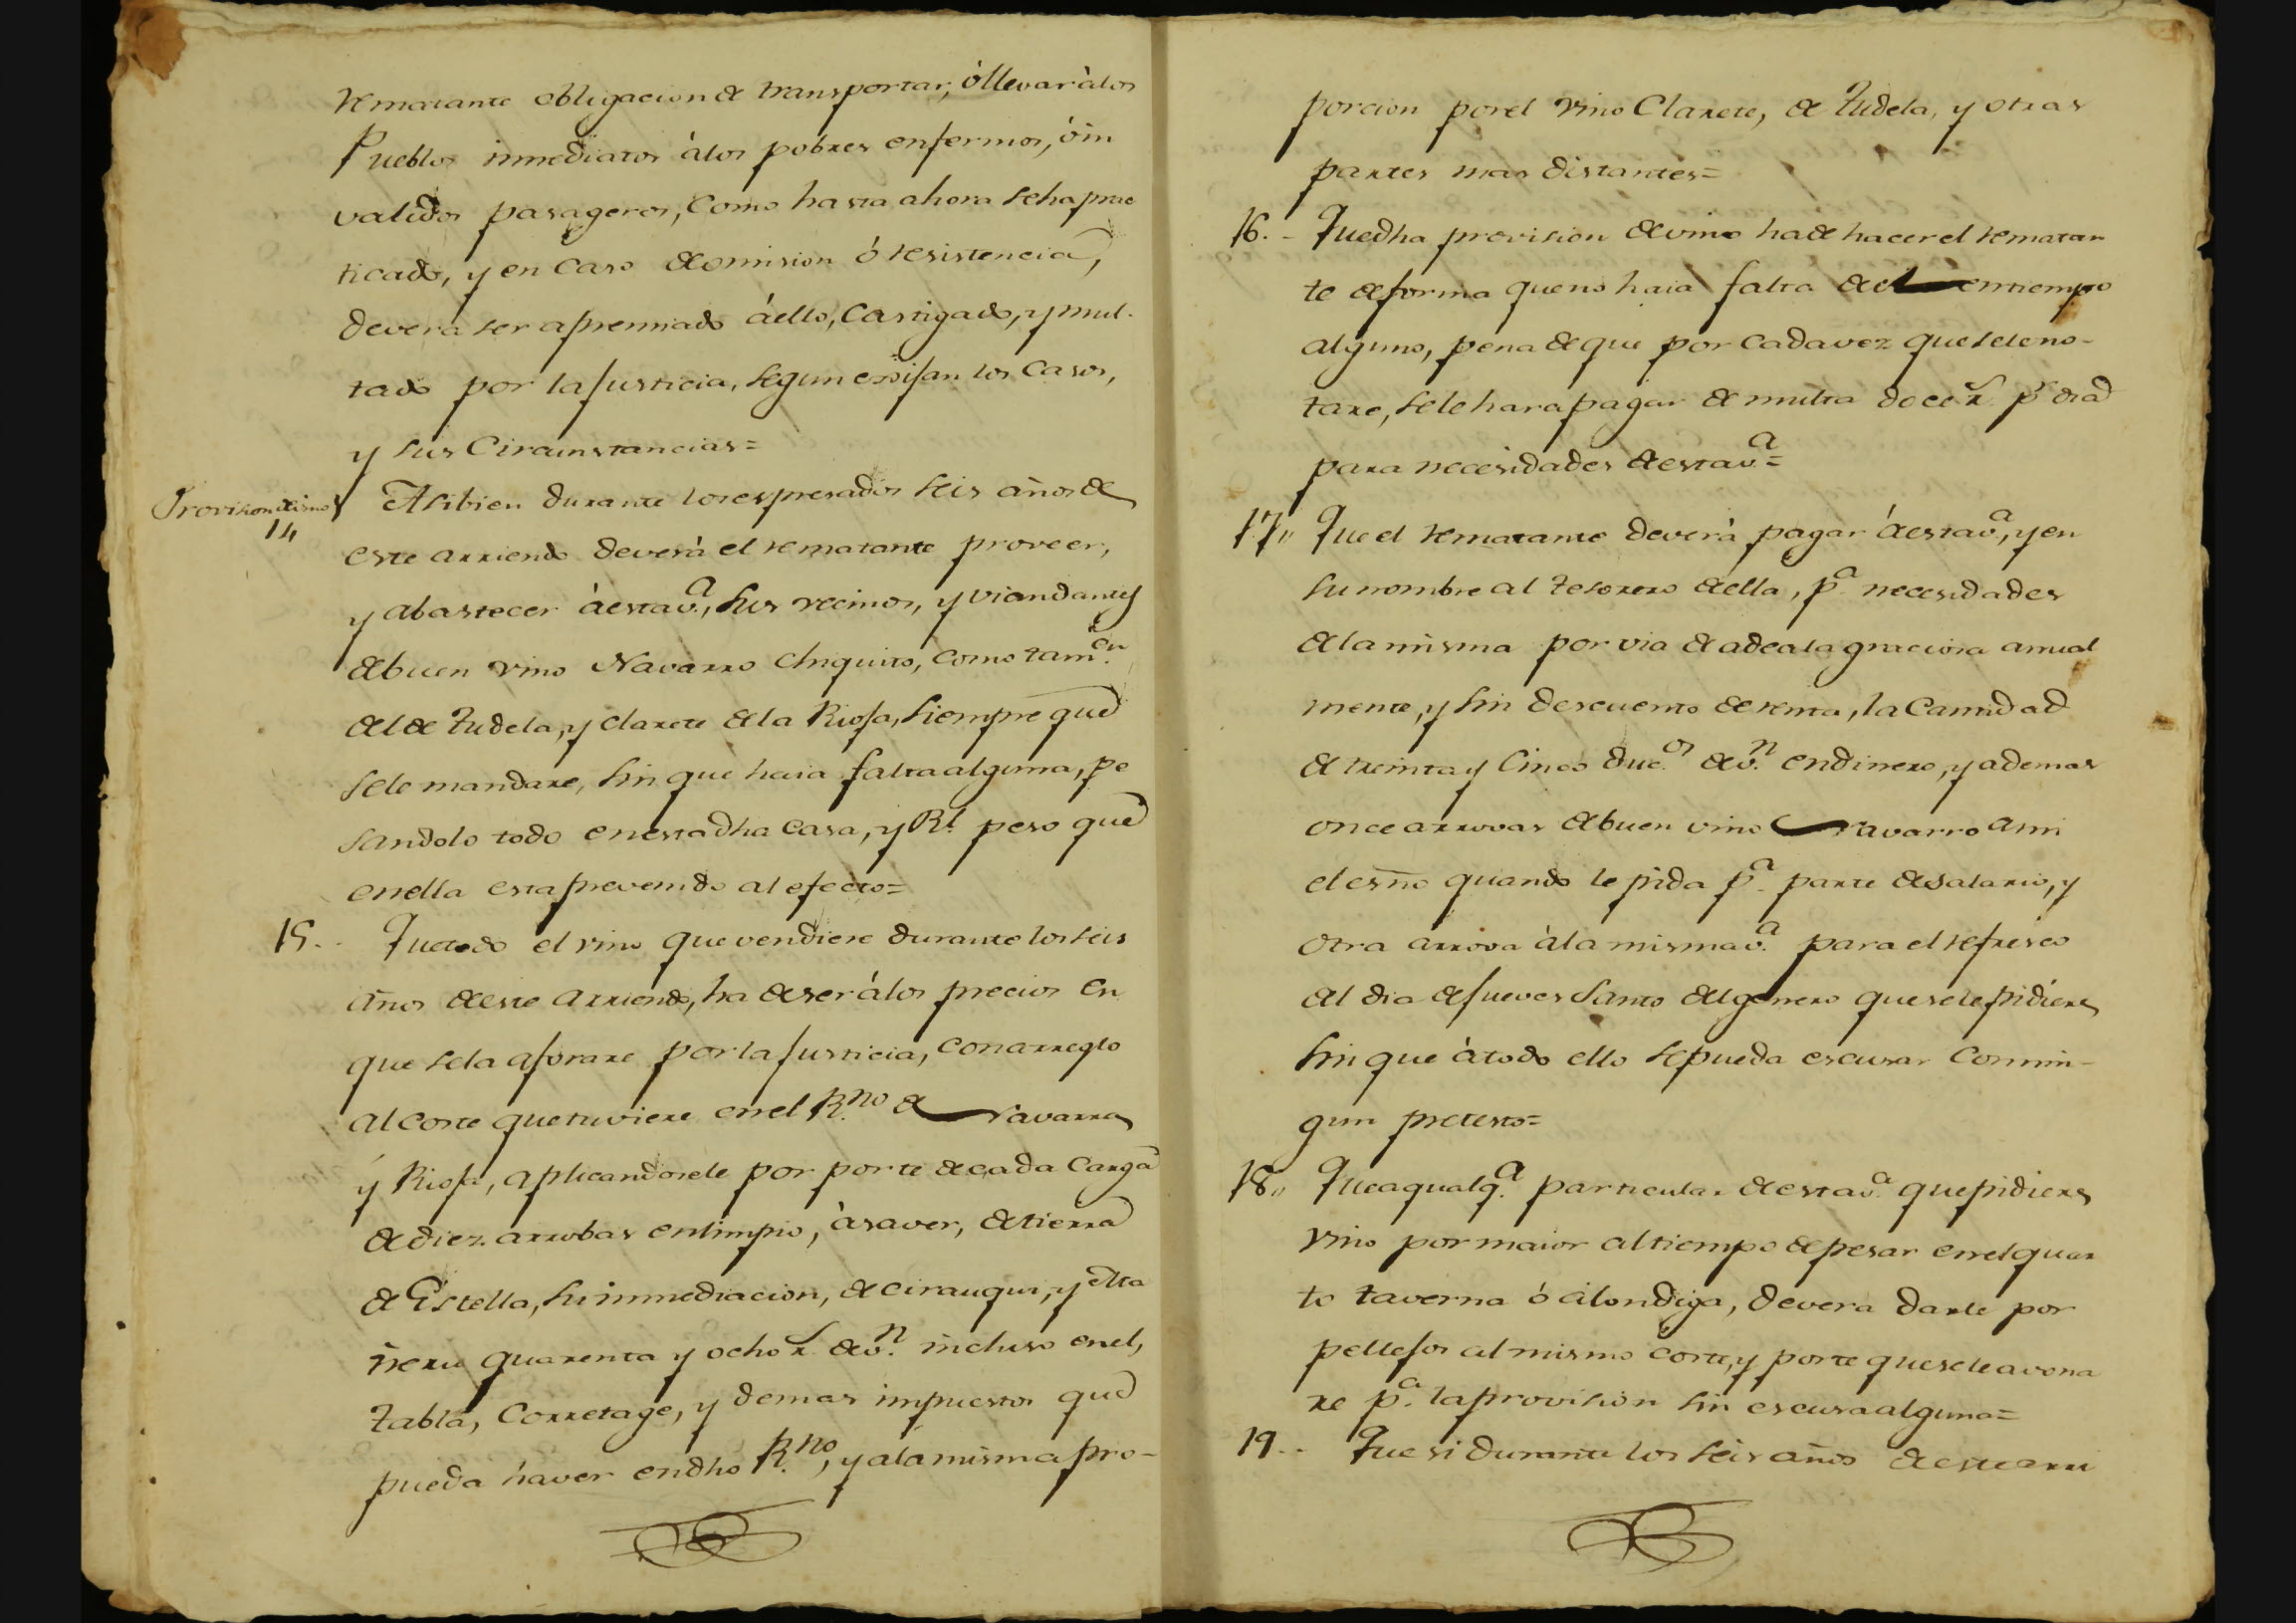 rematante obligacion de transportar, ó llevar à los
Pueblos inmediatos à los pobres enfermos, ó in
validos pasageros, como hasta ahora se ha prac
ticado, y en caso de omision ó resistencia,
devera ser apremiado á ello, Castigado, y mul-
tado por la Justicia, segun exsijan los Casos,
y sus Circunstancias=
Provision de vinos
14
Asibien durante los espresados seis años de
este arriendo deverà el rematante proveer,
y abastecer à esta v.ª, sus vecinos, y viandantes
de buen vino Navarro Chiquito, como tam.en
del de Tudela, y clarete de la Rioja, siempre que
se le mandare, sin que haia falta alguna, pe
sandolo todo en esta dha casa, y Rl. peso que
en ella esta prevenido al efecto=
15..
Que todo el vino que vendiere durante los seis
años de este arriendo, ha de ser á los precios en
que se la aforare por la Justicia, con arreglo
al coste que tuviere en el R.no de Navarra
y Rioja, aplicandosele por porte de cada Carga
de diez arrobas en limpio, à saver, de tierra
de Estella, su inmediacion, de Cirauqui, y Ma
ñeru quarenta y ocho r.s de v.n incluso en el,
tabla, Corretage, y demas impuestos que
pueda haver en dho R.no, y a la misma pro-
porcion por el vino Clarete, de Tudela, y otras
partes mas distantes=
16.- Que dha provision de vino ha de hacer el rematan
te de forma que no haia falta de el en tiempo
alguno, pena de que por cada vez que se le no-
tare, se le hara pagar de multa doce r.s p.r dia
para necesidades de esta v.ª=
17,, Que el rematante deverà pagar á esta v.ª, y en
su nombre al tesorero de ella, p.ª necesidades
de la misma por via de adeala graciosa anual
mente, y sin descuento de renta, la Cantidad
de treinta y Cinco duc.os de v.n en dinero, y ademas
once arrovas de buen vino Navarro a mi
el esño quando le pida p.ª parte de salario, y
otra arrova à la misma v.ª para el refresco
del dia de Jueves Santo del genero que se le pidiere
sin que à todo ello se pueda escusar con nin-
gun pretesto=
18,, Que a qualq.ª particular de esta v.ª que pidiere
vino por maior al tiempo de pesar en el quar
to taverna ó alondiga, devera darle por
pellejos al mismo coste, y porte que se le avona
re p.ª la provision sin escusa alguna=
19.. Que si durante los seis años de este arri